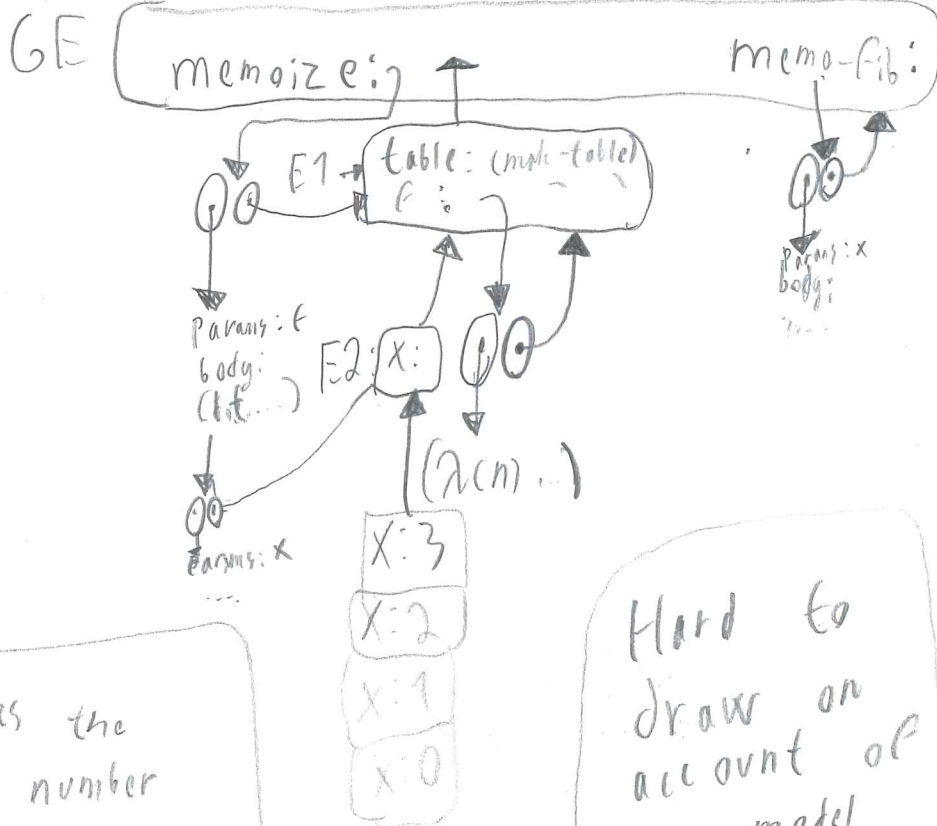 GE
memoize:
memo-fib:
E1
table: (mak-table)
f:
Params: f
body:
(let...)
E2:
x:
Params: x
body:
(λ(n)...)
Params: x
....
X:3
X:2
X:1
X:0
the
number
Hard to
draw on
account of
model